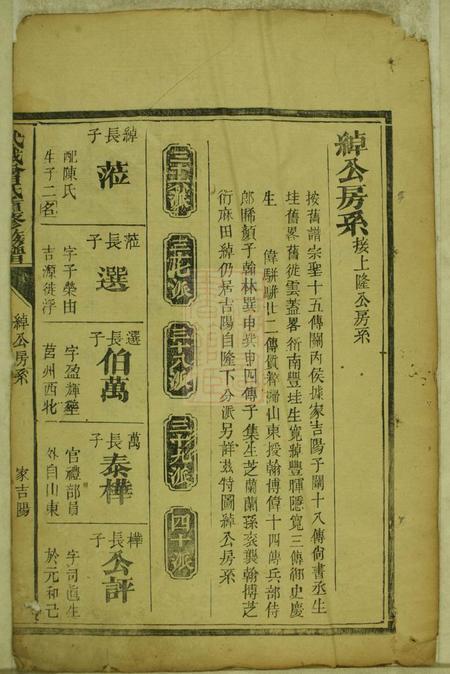 綽公房系 接上隆公房系
按舊譜宗聖十五傳關內侯據家吉陽予關十八傳尚書丞生
珪舊畧舊徙雲蓋畧衍南豐珪生寬綽豐暉隱寬三傳御史慶
生
偉駢駢廿二傳質粹歸山東授翰博偉十四傳兵部侍
郎晞顏子翰林巽申巽申四傳子集生芝蘭蘭孫袞襲翰博芝
衍麻田綽仍居吉陽自隆下分派另詳茲特圖綽公房系
三十六派
三十七派
三十八派
三十九派
四十派
綽長子 蒞
蒞長子 選
選長子 伯萬
萬長子 泰樺
樺長子 公評
配陳氏
生子二
字子榮由
吉源徙浮
字盈輝
莒州西北
官禮部員
外自山東
字司眞生
於元和己
武城曾氏重修族譜
綽公房系
家吉陽